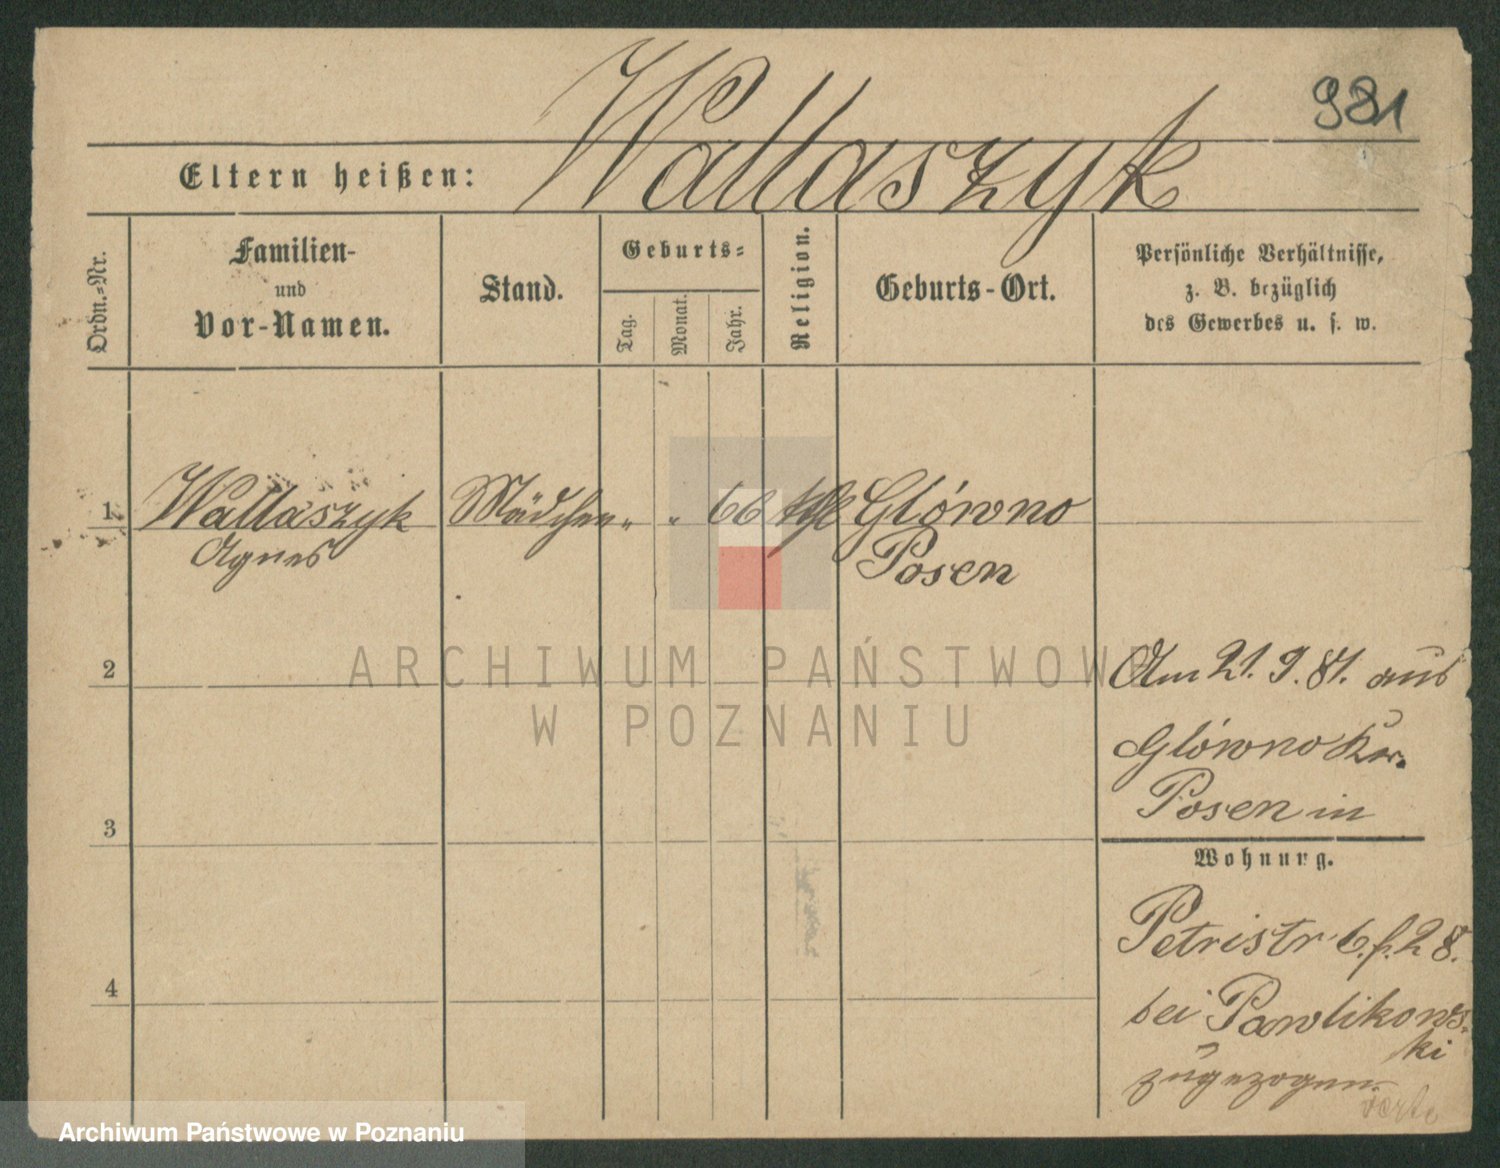 Wallaszyk
981
Eltern heißen:
Ordn.-Nr.
Familien-
und
Vor-Namen.
Stand.
Geburts-
Tag.
Monat.
Jahr.
Religion.
Geburts-Ort.
Persönliche Verhältnisse,
z. B. bezüglich
des Gewerbes u. s. w.
1 Wallaszyk Mädchen " " 66 kth Glówno
Agnes Posen
ARCHIWUM PAŃSTWOWE
W POZNANIU
2
Am 21. 9. 81. aus
Glówno Kr.
Posen in
3
Wohnung.
Petristr 6. f. 28.
4
bei Pawlikows-
ki
zugezogen.
verte
Archiwum Państwowe w Poznaniu